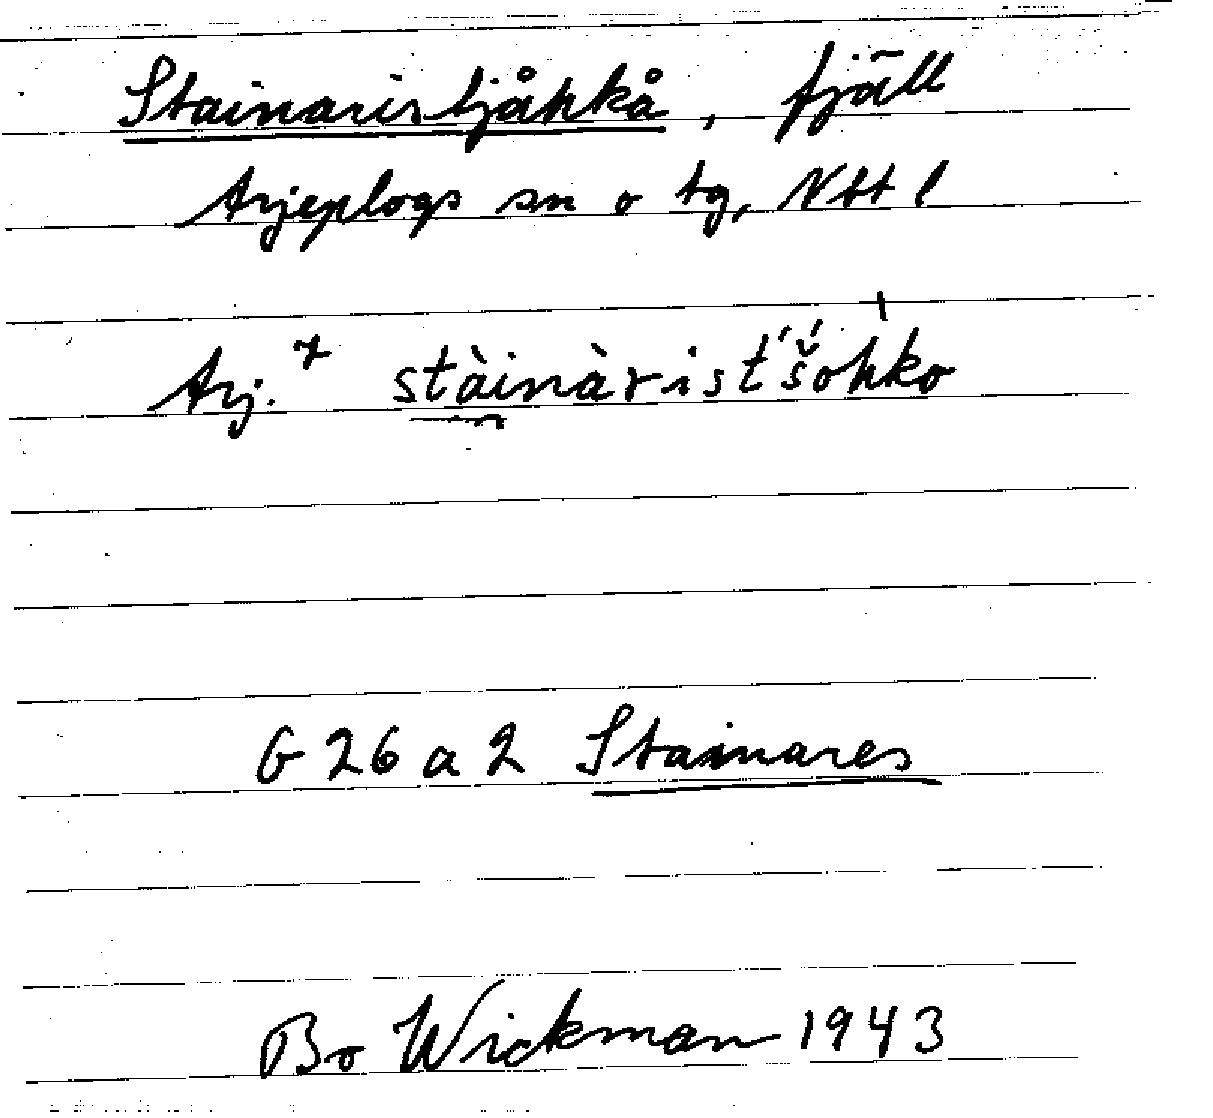 Stainaristjåhkå, fjäll
Arjeplogs sn o tg, Nbt l
Arj. stàinàrist́š́ohko
G 26 a 2 Stainares
Bo Wickman 1943